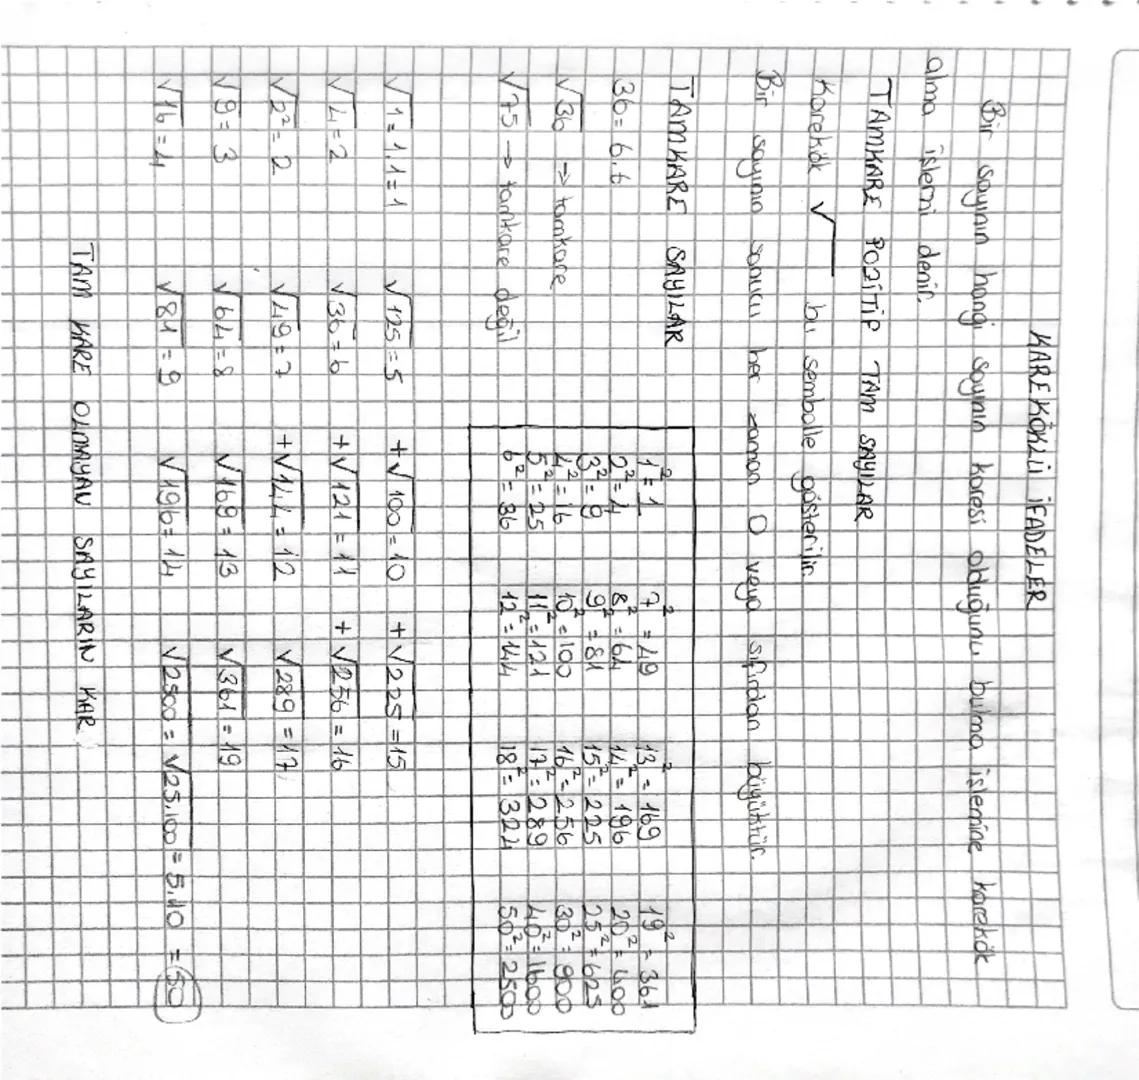 KAREKÖKLÜ İFADELER
Bir sayının hangi sayının karesi olduğunu bulma işlemine karekök
alma işlemi denir.
TAMKARE POZİTİF TAM SAYILAR
Karekök √ bu sembolle gösterilir.
Bir sayının sonucu her zaman 0 veya sıfırdan büyüktür.
TAMKARE SAYILAR
36 = 6.6
√36 → tamkare
√75 → tamkare değil
1² = 1 7² = 49 13² = 169 19² = 361
2² = 4 8² = 64 14² = 196 20² = 400
3² = 9 9² = 81 15² = 225 25² = 625
4² = 16 10² = 100 16² = 256 30² = 900
5² = 25 11² = 121 17² = 289 40² = 1600
6² = 36 12² = 144 18² = 324 50² = 2500
√1 = 1.1 = 1 √125 = 5 +√100 = 10 +√225 = 15
√4 = 2 √36 = 6 +√121 = 11 +√256 = 16
√2² = 2 √49 = 7 +√144 = 12 √289 = 17
√9 = 3 √64 = 8 √169 = 13 √361 = 19
√16 = 4 √81 = 9 √196 = 14 √2500 = √25.100 = 5.10 = 50
TAM KARE OLMAYAN SAYILARIN KAR